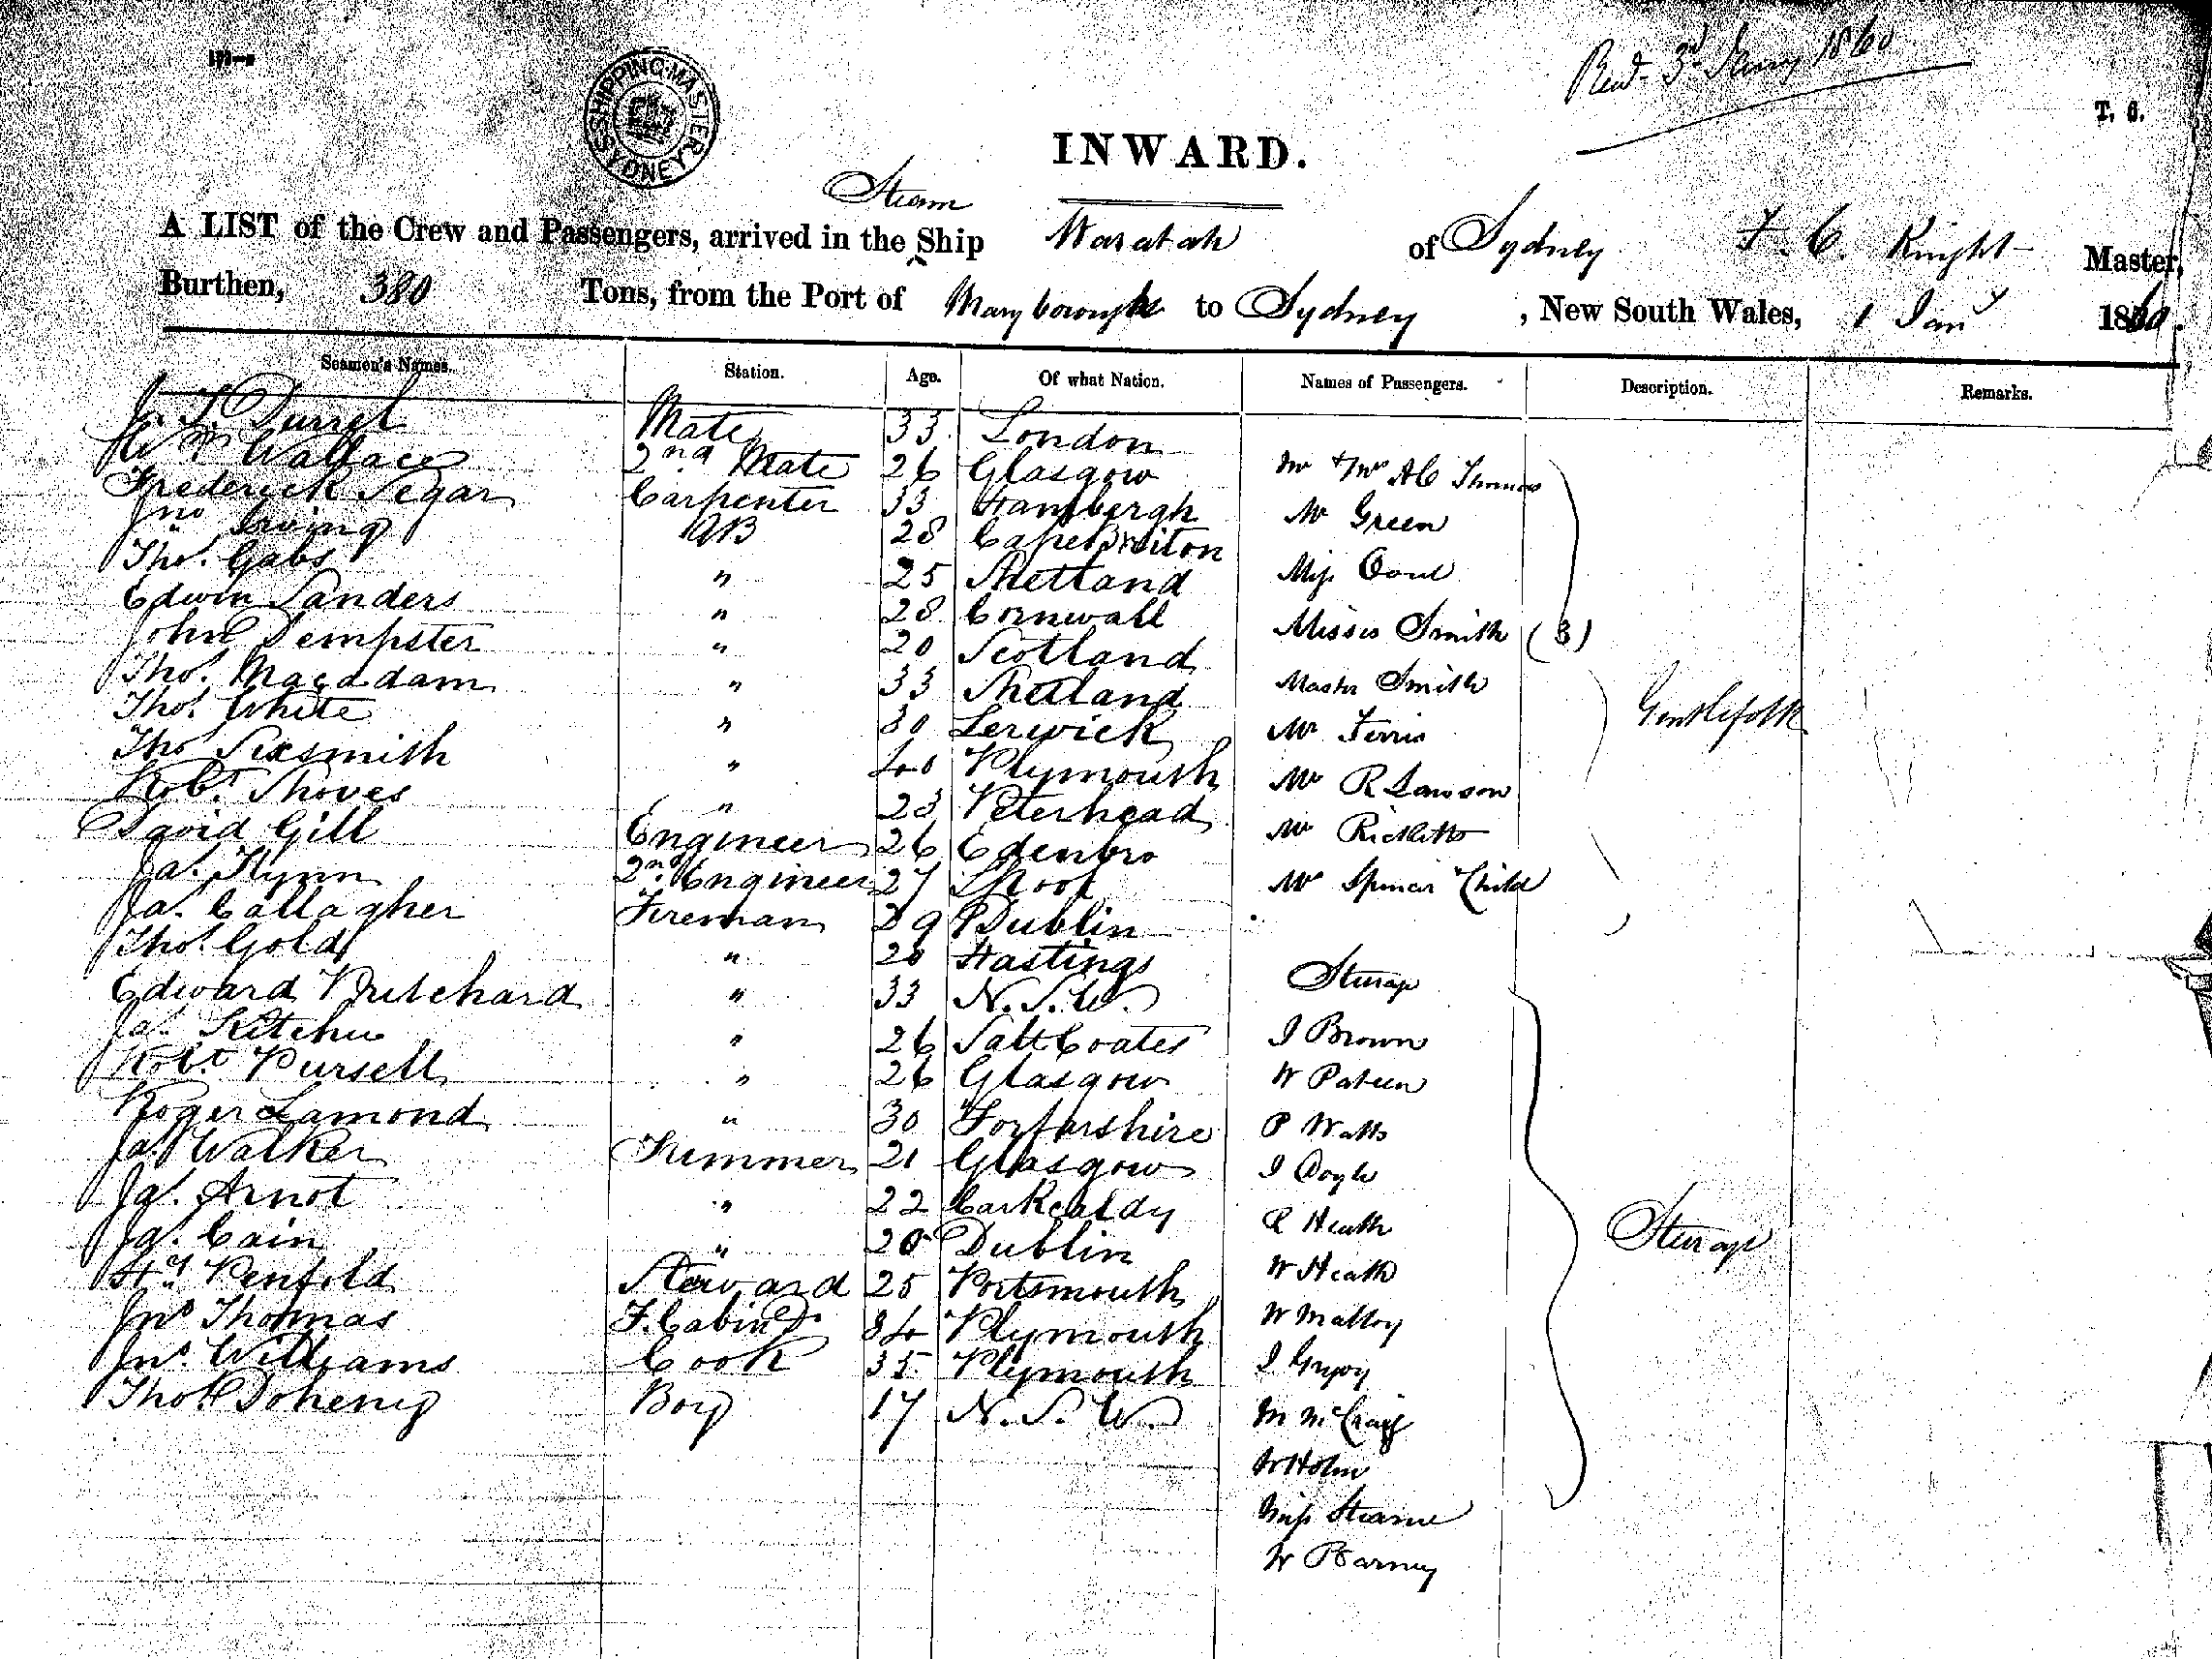 SHIPPING MASTER SYDNEY
Recd. 3rd Jany 1860
T. 6.
INWARD.
Steam
A LIST of the Crew and Passengers, arrived in the Ship Waratah of Sydney F. C. Knight Master,
Burthen, 380 Tons, from the Port of Maryborough to Sydney, New South Wales, 1 Jany 1860.
Seamen's Names. Station. Age. Of what Nation. Names of Passengers. Description. Remarks.
J. T. Durrel Mate 33 London
Wm Wallace 2nd Mate 26 Glasgow Mr & Mrs A C Thomas
Frederick Segar Carpenter 33 Hambergh Mr Green
Jno Irving AB 28 Cape Briton
Thos. Gabs " 25 Shetland Miss
Edwin Sanders " 28 Cornwall Misses Smith (3)
John Dempster " 20 Scotland
Thos. Macadam " 33 Shetland Master Smith
Thos. White " 30 Lerwick Mr Ferris Gentlefolk
Thos Sixsmith " 40 Plymouth Mr R Lawson
Robt. Shoves " 23 Peterhead Mr Ricketts
David Gill Engineer 26 Edenbro
Jas. Flynn 2nd Engineer 27 LPool Mr Child
Jas. Callagher Fireman 29 Dublin
Thos. Gold " 28 Hastings Steerage
Edward Pritchard " 33 N. S. W.
Jas. Ritchie " 26 Salt Coates J Brown
Robt Pursell " 26 Glasgow W
Roger Lamond " 30 Forfarshire P Watts
Jas. Walker Trimmer 21 Glasgow J Doyle
Jas. Arnot " 22 Carkcaldy R Heath
Jas. Cain " 20 Dublin W Heath Steerage
Hy. Penfold Steward 25 Portsmouth
Jno Thomas F. Cabin Do. 34 Plymouth W Malloy
Jno. Williams Cook 35 Plymouth J
Thos. Doheny Boy 17 N. S. W. M McCraig
W Holm
Miss Stearne
W Barney